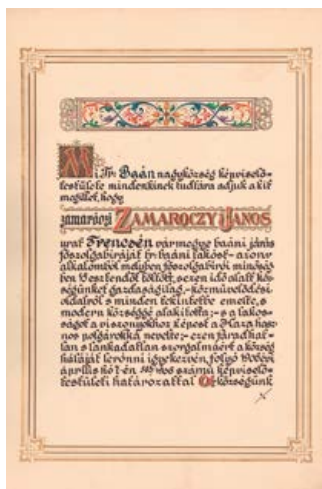 Mi Tr. Baán nagyközség képviselő-
testülete mindenkinek tudtára adjuk akit
megillet, hogy
zamaróczi ZAMAROCZY JÁNOS
urat Trencsén vármegye baáni járás
főszolgabiráját tr. baáni lakóst - azon
alkalomból melyben főszolgabirói minőség-
ben 15 esztendőt töltött, ezen idő alatt köz-
ségünket gazdaságilag, - közművelődési
oldalról s minden tekintetbe emelte, s
modern községgé alakitotta; - s a lakos-
ságot a viszonyokhoz képest a Haza hasz-
nos polgárokká nevelte; - ezen fáradhat-
lan s lankadatlan szorgalmáért a község
háláját lerónni igyekezvén, folyó 1906 évi
április hó 7-én számú képviselő-
testületi határozattal községünk